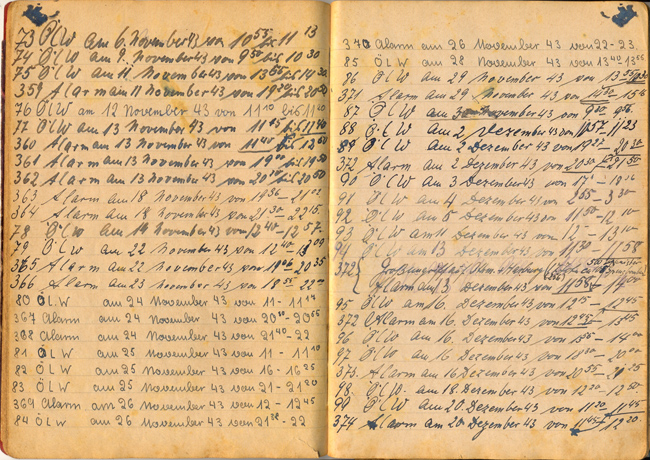 73 ÖLW am 6. November 43 von 10 55 bis 11 13
74 ÖLW am 9. November 43 von 9 50 bis 10 30
75 ÖLW am 11. November 43 von 13 50 bis 14 30
359 Alarm am 11 November 43 von 19 bis 20
76 ÖLW am 12 November 43 von 11 10 bis 11 40
77 ÖLW am 13 November 43 von 11 15 bis 11 40
360 Alarm am 13 November 43 von 11 40 bis 12 50
361 Alarm am 13 November 43 von 19 00 bis 19 50
362 Alarm am 13 November 43 von 20 10 bis 20 50
363 Alarm am 18 November 43 von 19 56 - 21 03
364 Alarm am 18 November 43 von 21 30 - 22 15
78 ÖLW am 19 November 43 von 12 40 - 12 57
79 ÖLW am 22 November 43 von 12 40 - 13 09
365 Alarm am 22 November 43 von 19 06 - 20 35
366 Alarm am 23 November 43 von 18 55 -
80 ÖLW am 24 November 43 von 11 - 11 14
367 Alarm am 24 November 43 von 20 30 - 20 55
368 Alarm am 24 November 43 von 21 40 - 22
81 ÖLW am 25 November 43 von 11 - 11 10
82 ÖLW am 25 November 43 von 16 - 16 25
83 ÖLW am 25 November 43 von 21 - 21 20
369 Alarm am 26 November 43 von 12 - 12 45
84 ÖLW am 26 November 43 von 21 - 22
370 Alarm am 26 November 43 von 22 - 23
85 ÖLW am 28 November 43 von 13 40 13 55
86 ÖLW am 29 November 43 von 13 55
371 Alarm am 29 November 43 von 14 50 - 15
87 ÖLW am November 43 von 9 - 9
88 ÖLW am 2 Dezember 43 von 10 57 - 11 23
89 ÖLW am 2 Dezember 43 von 19 - 20 30
372 Alarm am 2 Dezember 43 von 20 30 - 21 50
90 ÖLW am 3 Dezember 43 von 17 - 18
91 ÖLW am 4 Dezember 43 von 2 55 - 3 30
92 ÖLW am 5 Dezember 43 von 11 50 - 12 10
93 ÖLW am 11 Dezember 43 von 12 - 13 10
94 ÖLW am 13 Dezember 43 von 11 30 - 11 58
372 Alarm am 13 Dezember 43 von 11 58 - 14 00
95 ÖLW am 16. Dezember 43 von 12 - 12 45
372 Alarm am 16. Dezember 43 von 12 45 - 13 45
96 ÖLW am 16 Dezember 43 von 13 55 - 14 00
97 ÖLW am 16 Dezember 43 von - 20 00
373 Alarm am 16 Dezember 43 von 20 55 - 21 25
98. ÖLW am 18. Dezember 43 von 12 20 - 12 50
99 ÖLW am 20. Dezember 43 von 11 30 - 11 45
374 Alarm am 20. Dezember 43 von 11 45 - 13 20